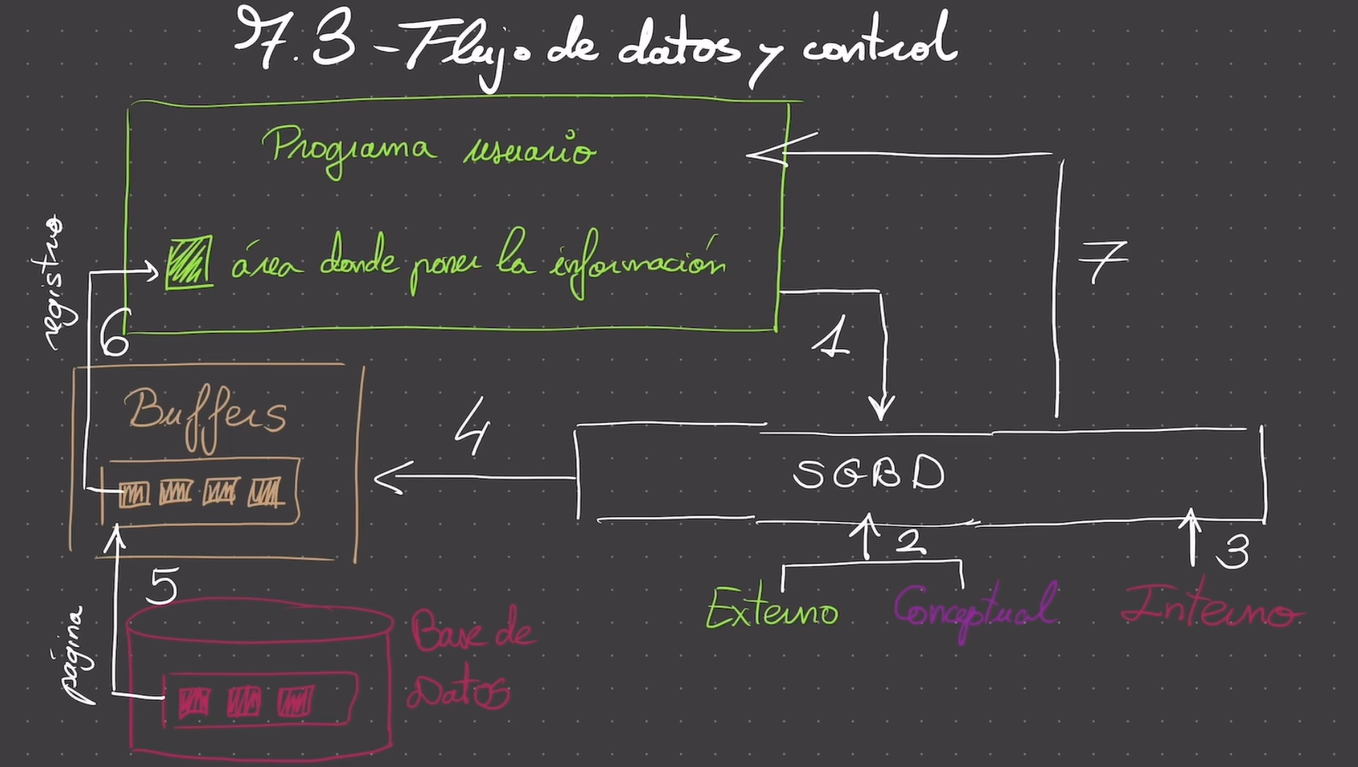 7.3 - Flujo de datos y control
Programa usuario
área donde poner la información
registro
6
7
1
Buffers
4
SGBD
2
3
5
Externo
Conceptual
Interno
página
Base de
Datos